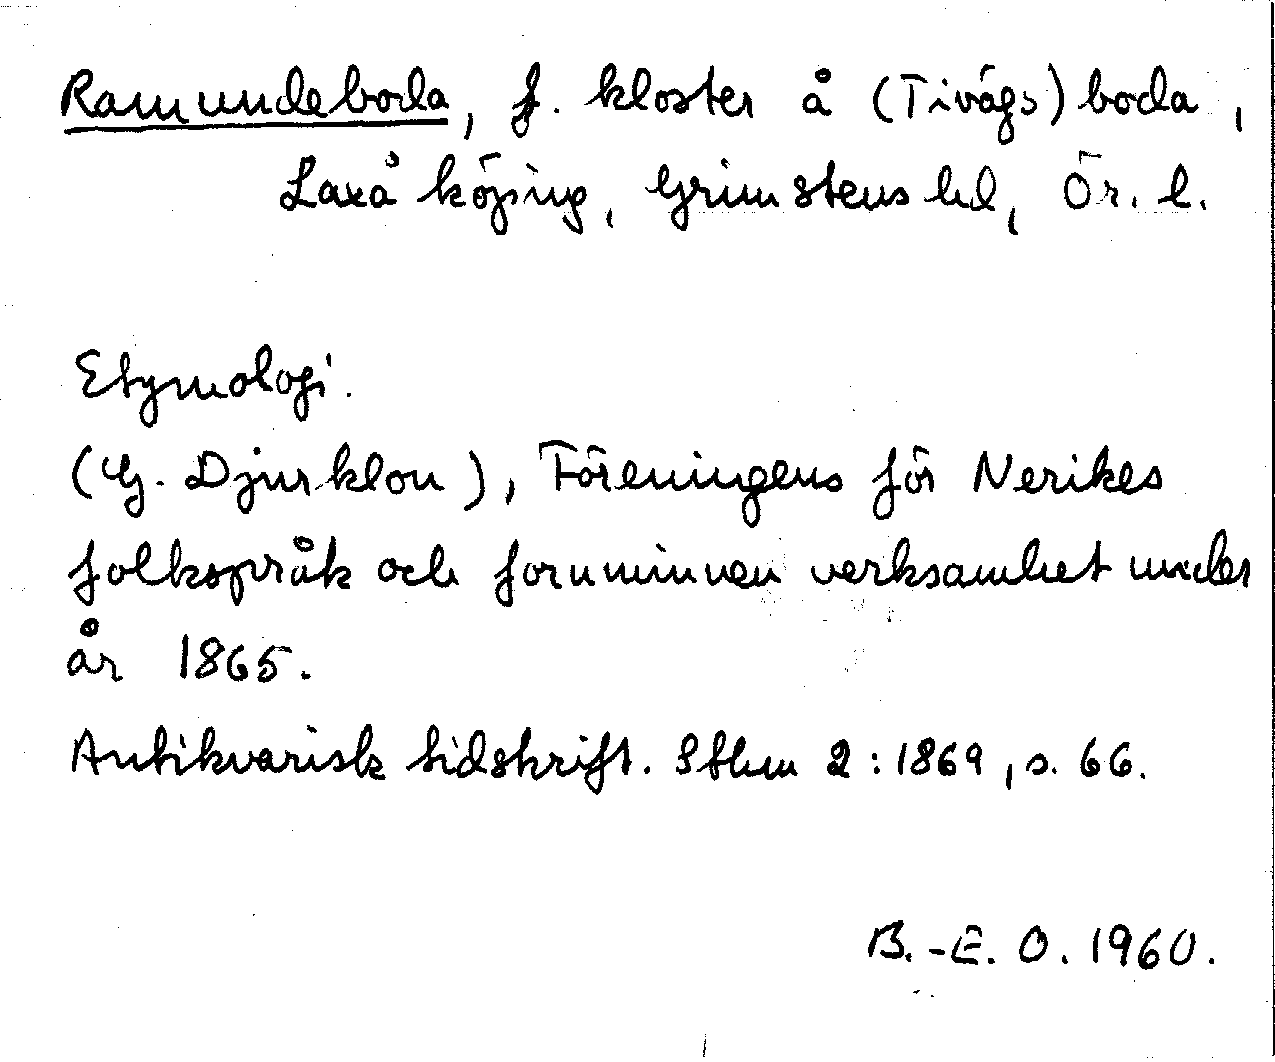 Ramundeboda, f. kloster å (Tivägs)boda,
Laxå köping, Grimstens hd, Ör. l.
Etymologi.
(G. Djurklou), Föreningens för Nerikes
folkspråk och fornminnen verksamhet under
år 1865.
Antikvarisk tidskrift. Sthlm 2:1869, s. 66.
B.-E. O. 1960.